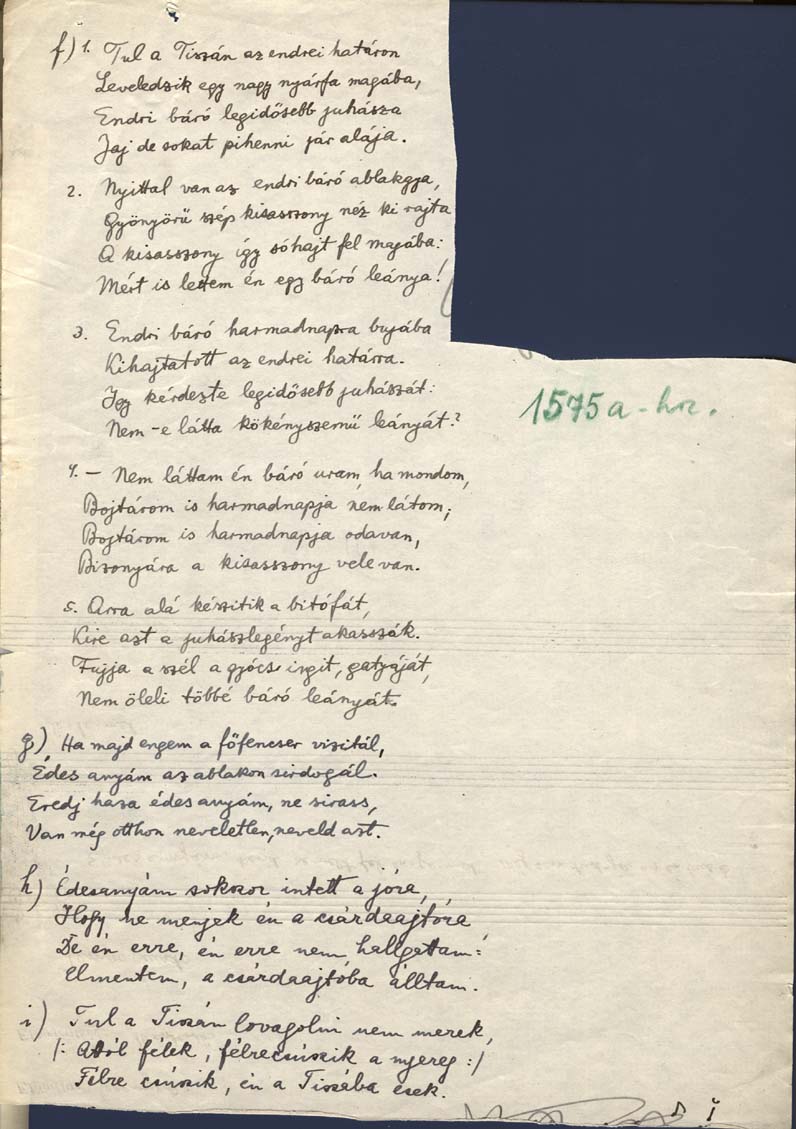 f) 1. Tul a Tiszán az endrei határon
Leveledzik egy nagy nyárfa magába,
Endri báró legidősebb juhásza
Jaj de sokat pihenni jár alája.
2. Nyittal van az endri báró ablakgya,
Gyönyörű szép kisasszony néz ki rajta
A kisasszony így sóhajt fel magába:
Mért is lettem én egy báró leánya!
3. Endri báró harmadnapra bujába
Kihajtatott az endrei határra.
Igy kérdezte legidősebb juhászát:
Nem-e látta kökényszemű leányát?
1575a-hoz.
4. – Nem láttam én báró uram, ha mondom,
Bojtárom is harmadnapja nem látom;
Bojtárom is harmadnapja odavan,
Bizonyára a kisasszony vele van.
5. Arra alá készitik a bitófát,
Kire azt a juhászlegényt akasszák.
Fujja a szél a gyócs ingit, gatyáját,
Nem öleli többé báró leányát.
g) Ha majd engem a főfencser vizitál,
Édes anyám az ablakon sirdogál.
Eredj haza édes anyám, ne sirass,
Van még otthon neveletlen, neveld azt.
h) Édesanyám sokszor intett a jóra,
Hogy ne menjek én a csárdaajtóra
De én erre, én erre nem hallgattam:
Elmentem, a csárdaajtóba álltam.
i) Tul a Tiszán lovagolni nem merek,
/: Attól félek, félrecsúszik a nyereg :/
Félre csúszik, én a Tiszába esek.